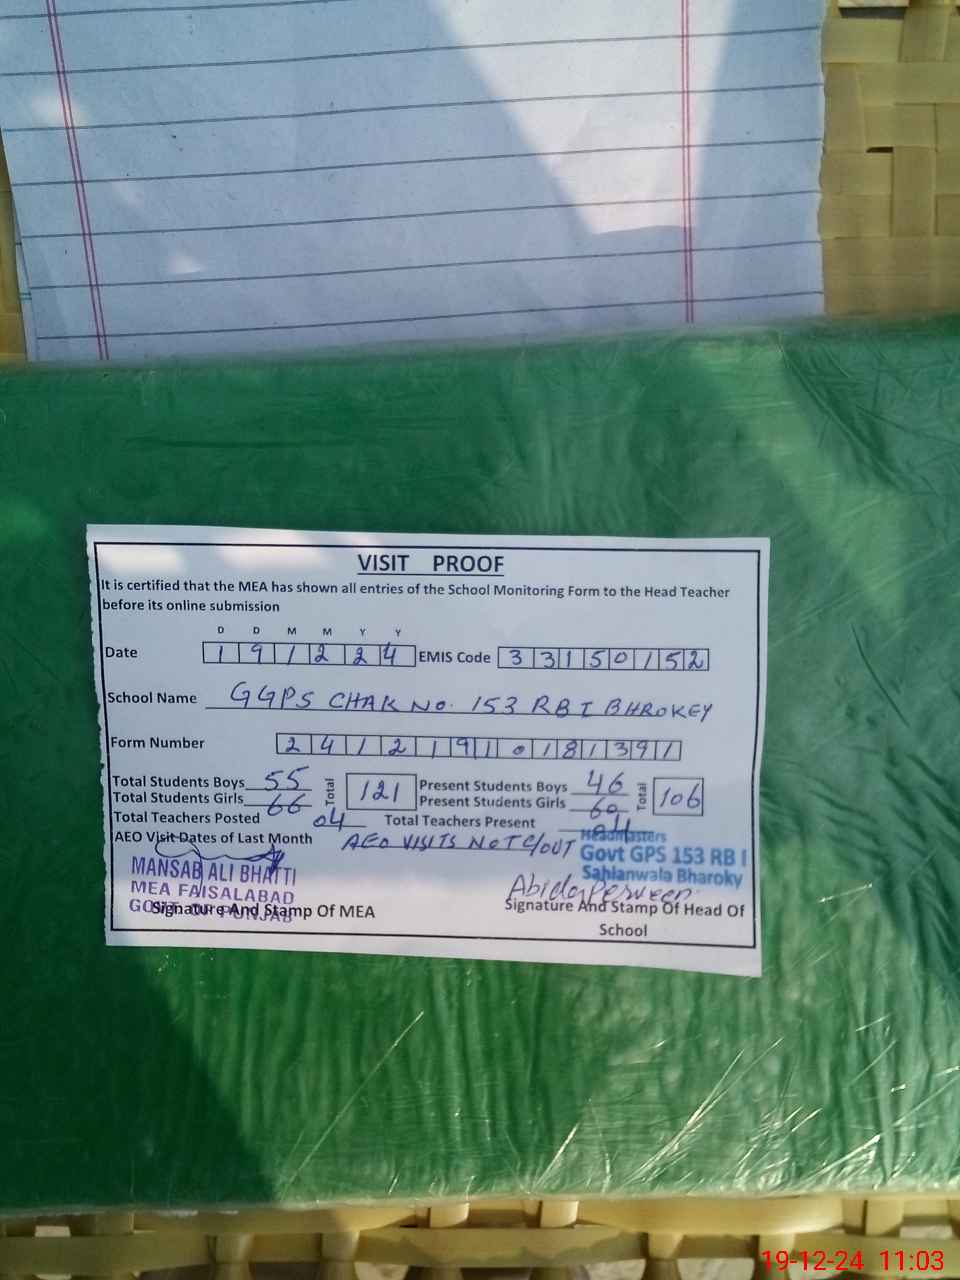 VISIT PROOF
It is certified that the MEA has shown all entries of the School Monitoring Form to the Head Teacher
before its online submission
D D M M Y Y
Date 1 9 1 2 2 4 EMIS Code 3 3 1 5 0 1 5 2
School Name GGPS CHAK NO. 153 RB I BHROKEY
Form Number 2 4 1 2 1 9 1 0 1 8 1 3 9 1
Total Students Boys 55 Total 121 Present Students Boys 46 Total 106
Total Students Girls 66 Present Students Girls 60
Total Teachers Posted 04 Total Teachers Present 04
AEO Visit Dates of Last Month AEO VISITS NOT C/OUT
Headmasters
Govt GPS 153 RB I
Sahlanwala Bharoky
MANSAB ALI BHATTI
MEA FAISALABAD
GOVT. OF PUNJAB
Abida Perveen
Signature And Stamp Of MEA
Signature And Stamp Of Head Of
School
19-12-24 11:03